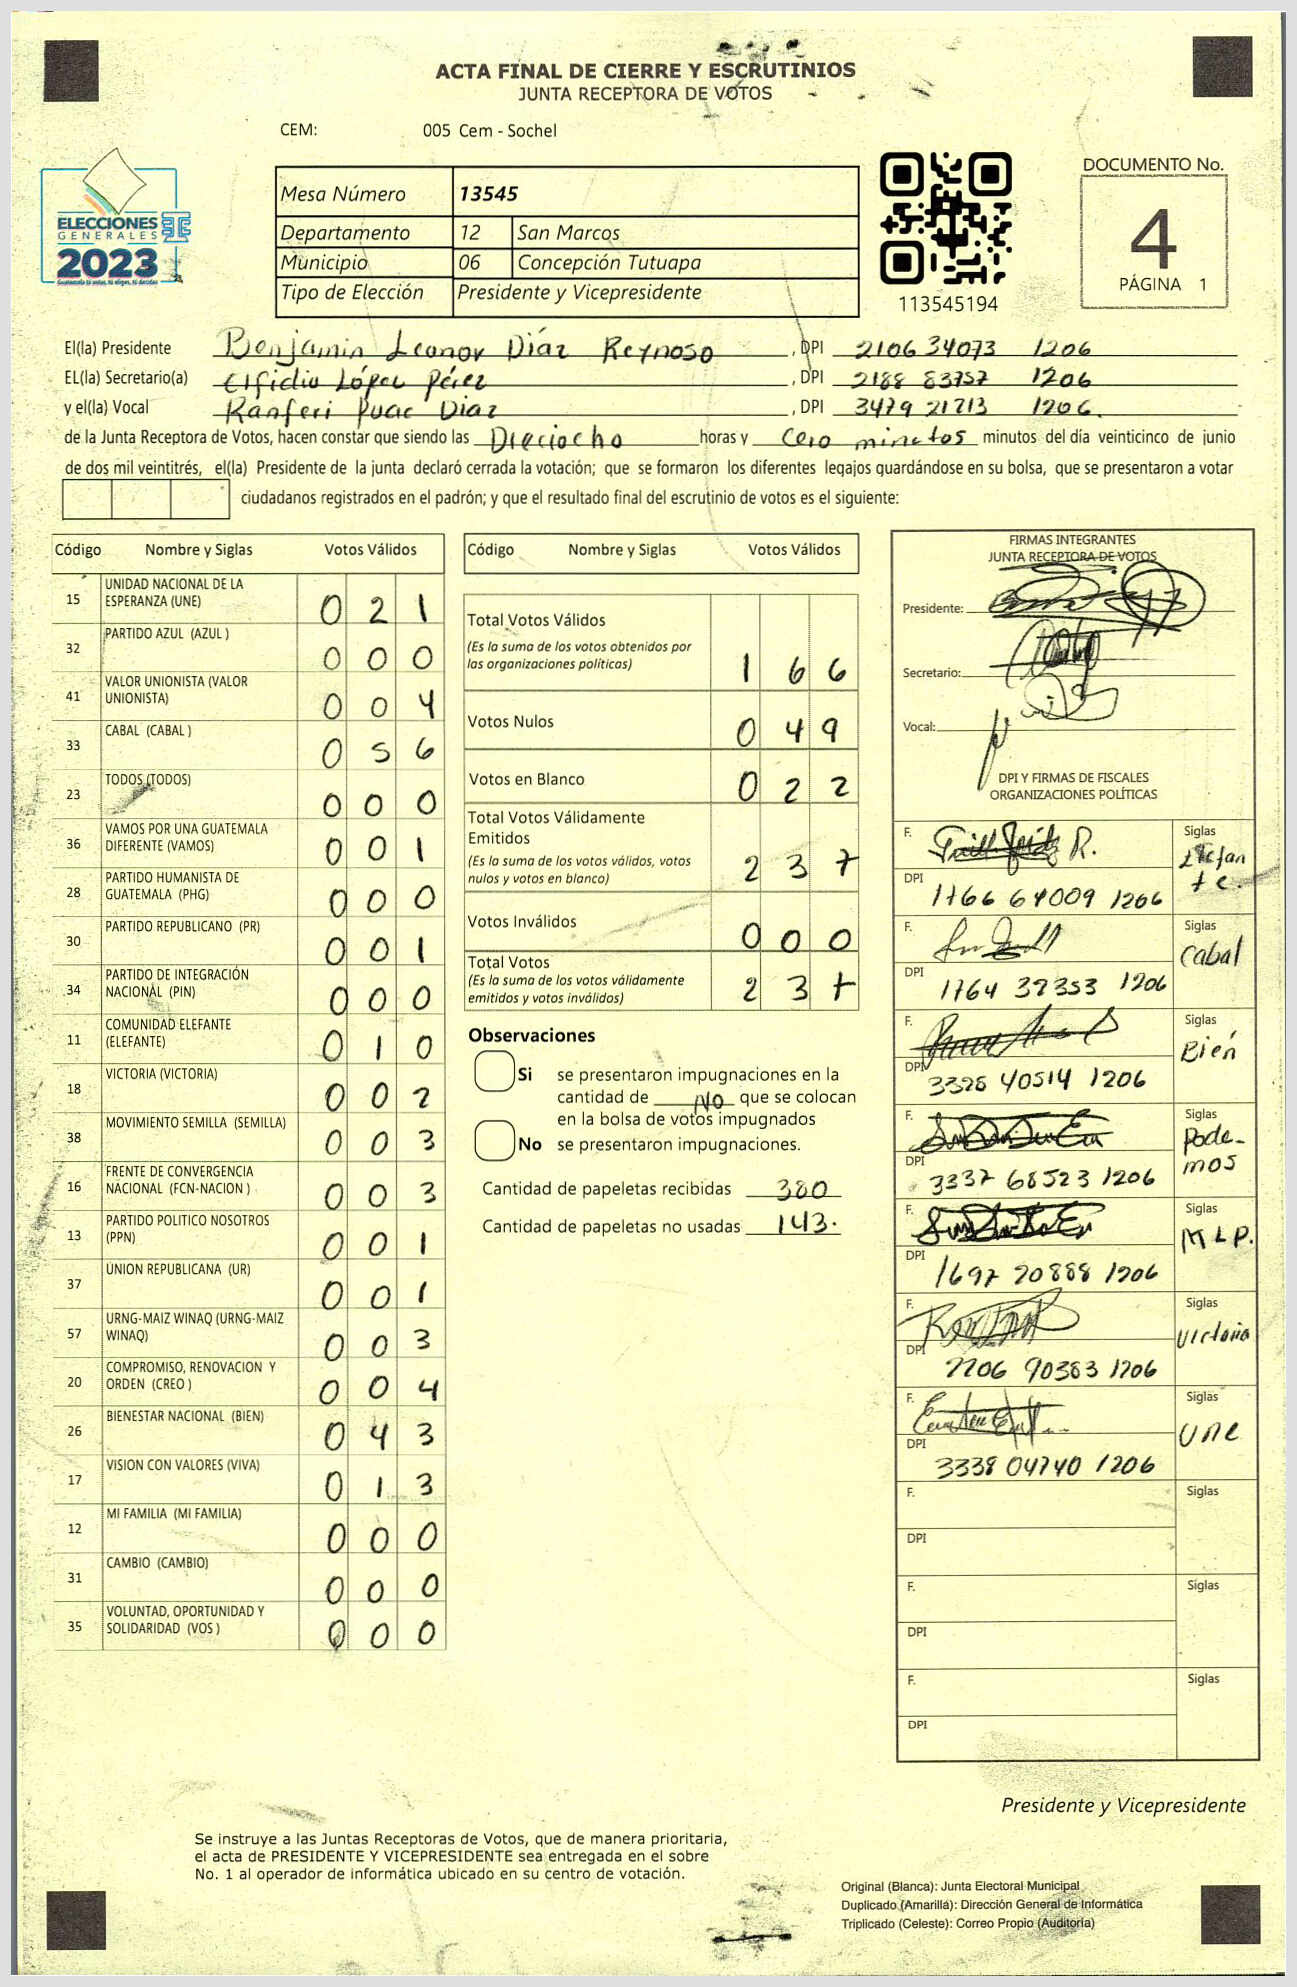 ACTA FINAL DE CIERRE Y ESCRUTINIOS
JUNTA RECEPTORA DE VOTOS
CEM: 005 Cem - Sochel
ELECCIONES
GENERALES
2023
Mesa Número 13545
Departamento 12 San Marcos
Municipio 06 Concepción Tutuapa
Tipo de Elección Presidente y Vicepresidente
113545194
DOCUMENTO No.
4
PÁGINA 1
El(la) Presidente Benjamin Leonor Díaz Reynoso , DPI 2106 34073 1206
EL(la) Secretario(a) Elfidio López Pérez , DPI 2188 83757 1206
y el(la) Vocal Ranferi Puac Diaz , DPI 3479 21713 1206.
de la Junta Receptora de Votos, hacen constar que siendo las Dieciocho horas y cero minutos minutos del día veinticinco de junio
de dos mil veintitrés, el(la) Presidente de la junta declaró cerrada la votación; que se formaron los diferentes legajos guardándose en su bolsa, que se presentaron a votar
ciudadanos registrados en el padrón; y que el resultado final del escrutinio de votos es el siguiente:
Código Nombre y Siglas Votos Válidos
15 UNIDAD NACIONAL DE LA ESPERANZA (UNE) 0 2 1
32 PARTIDO AZUL (AZUL ) 0 0 0
41 VALOR UNIONISTA (VALOR UNIONISTA) 0 0 4
33 CABAL (CABAL ) 0 5 6
23 TODOS (TODOS) 0 0 0
36 VAMOS POR UNA GUATEMALA DIFERENTE (VAMOS) 0 0 1
28 PARTIDO HUMANISTA DE GUATEMALA (PHG) 0 0 0
30 PARTIDO REPUBLICANO (PR) 0 0 1
34 PARTIDO DE INTEGRACIÓN NACIONAL (PIN) 0 0 0
11 COMUNIDAD ELEFANTE (ELEFANTE) 0 1 0
18 VICTORIA (VICTORIA) 0 0 2
38 MOVIMIENTO SEMILLA (SEMILLA) 0 0 3
16 FRENTE DE CONVERGENCIA NACIONAL (FCN-NACION ) 0 0 3
13 PARTIDO POLITICO NOSOTROS (PPN) 0 0 1
37 UNION REPUBLICANA (UR) 0 0 1
57 URNG-MAIZ WINAQ (URNG-MAIZ WINAQ) 0 0 3
20 COMPROMISO, RENOVACION Y ORDEN (CREO ) 0 0 4
26 BIENESTAR NACIONAL (BIEN) 0 4 3
17 VISION CON VALORES (VIVA) 0 1 3
12 MI FAMILIA (MI FAMILIA) 0 0 0
31 CAMBIO (CAMBIO) 0 0 0
35 VOLUNTAD, OPORTUNIDAD Y SOLIDARIDAD (VOS ) 0 0 0
Código Nombre y Siglas Votos Válidos
Total Votos Válidos
(Es la suma de los votos obtenidos por
las organizaciones políticas) 1 6 6
Votos Nulos 0 4 9
Votos en Blanco 0 2 2
Total Votos Válidamente
Emitidos
(Es la suma de los votos válidos, votos
nulos y votos en blanco) 2 3 7
Votos Inválidos 0 0 0
Total Votos
(Es la suma de los votos válidamente
emitidos y votos inválidos) 2 3 7
Observaciones
Si se presentaron impugnaciones en la
cantidad de NO que se colocan
en la bolsa de votos impugnados
No se presentaron impugnaciones.
Cantidad de papeletas recibidas 380
Cantidad de papeletas no usadas 143.
FIRMAS INTEGRANTES
JUNTA RECEPTORA DE VOTOS
Presidente:
Secretario:
Vocal:
DPI Y FIRMAS DE FISCALES
ORGANIZACIONES POLÍTICAS
F. Siglas Elefan
te.
DPI 1766 64009 1206
F. Siglas Cabal
DPI 1764 37353 1206
F. Siglas Bien
DPI 3328 40514 1206
F. Siglas Pode-
mos
DPI 3337 68523 1206
F. Siglas MLP.
DPI 1697 20888 1206
F. Siglas Victoria
DPI 2206 90383 1206
F. Siglas une
DPI 3338 04740 1206
F. Siglas
DPI
F. Siglas
DPI
F. Siglas
DPI
Presidente y Vicepresidente
Se instruye a las Juntas Receptoras de Votos, que de manera prioritaria,
el acta de PRESIDENTE Y VICEPRESIDENTE sea entregada en el sobre
No. 1 al operador de informática ubicado en su centro de votación.
Original (Blanca): Junta Electoral Municipal
Duplicado (Amarilla): Dirección General de Informática
Triplicado (Celeste): Correo Propio (Auditoría)